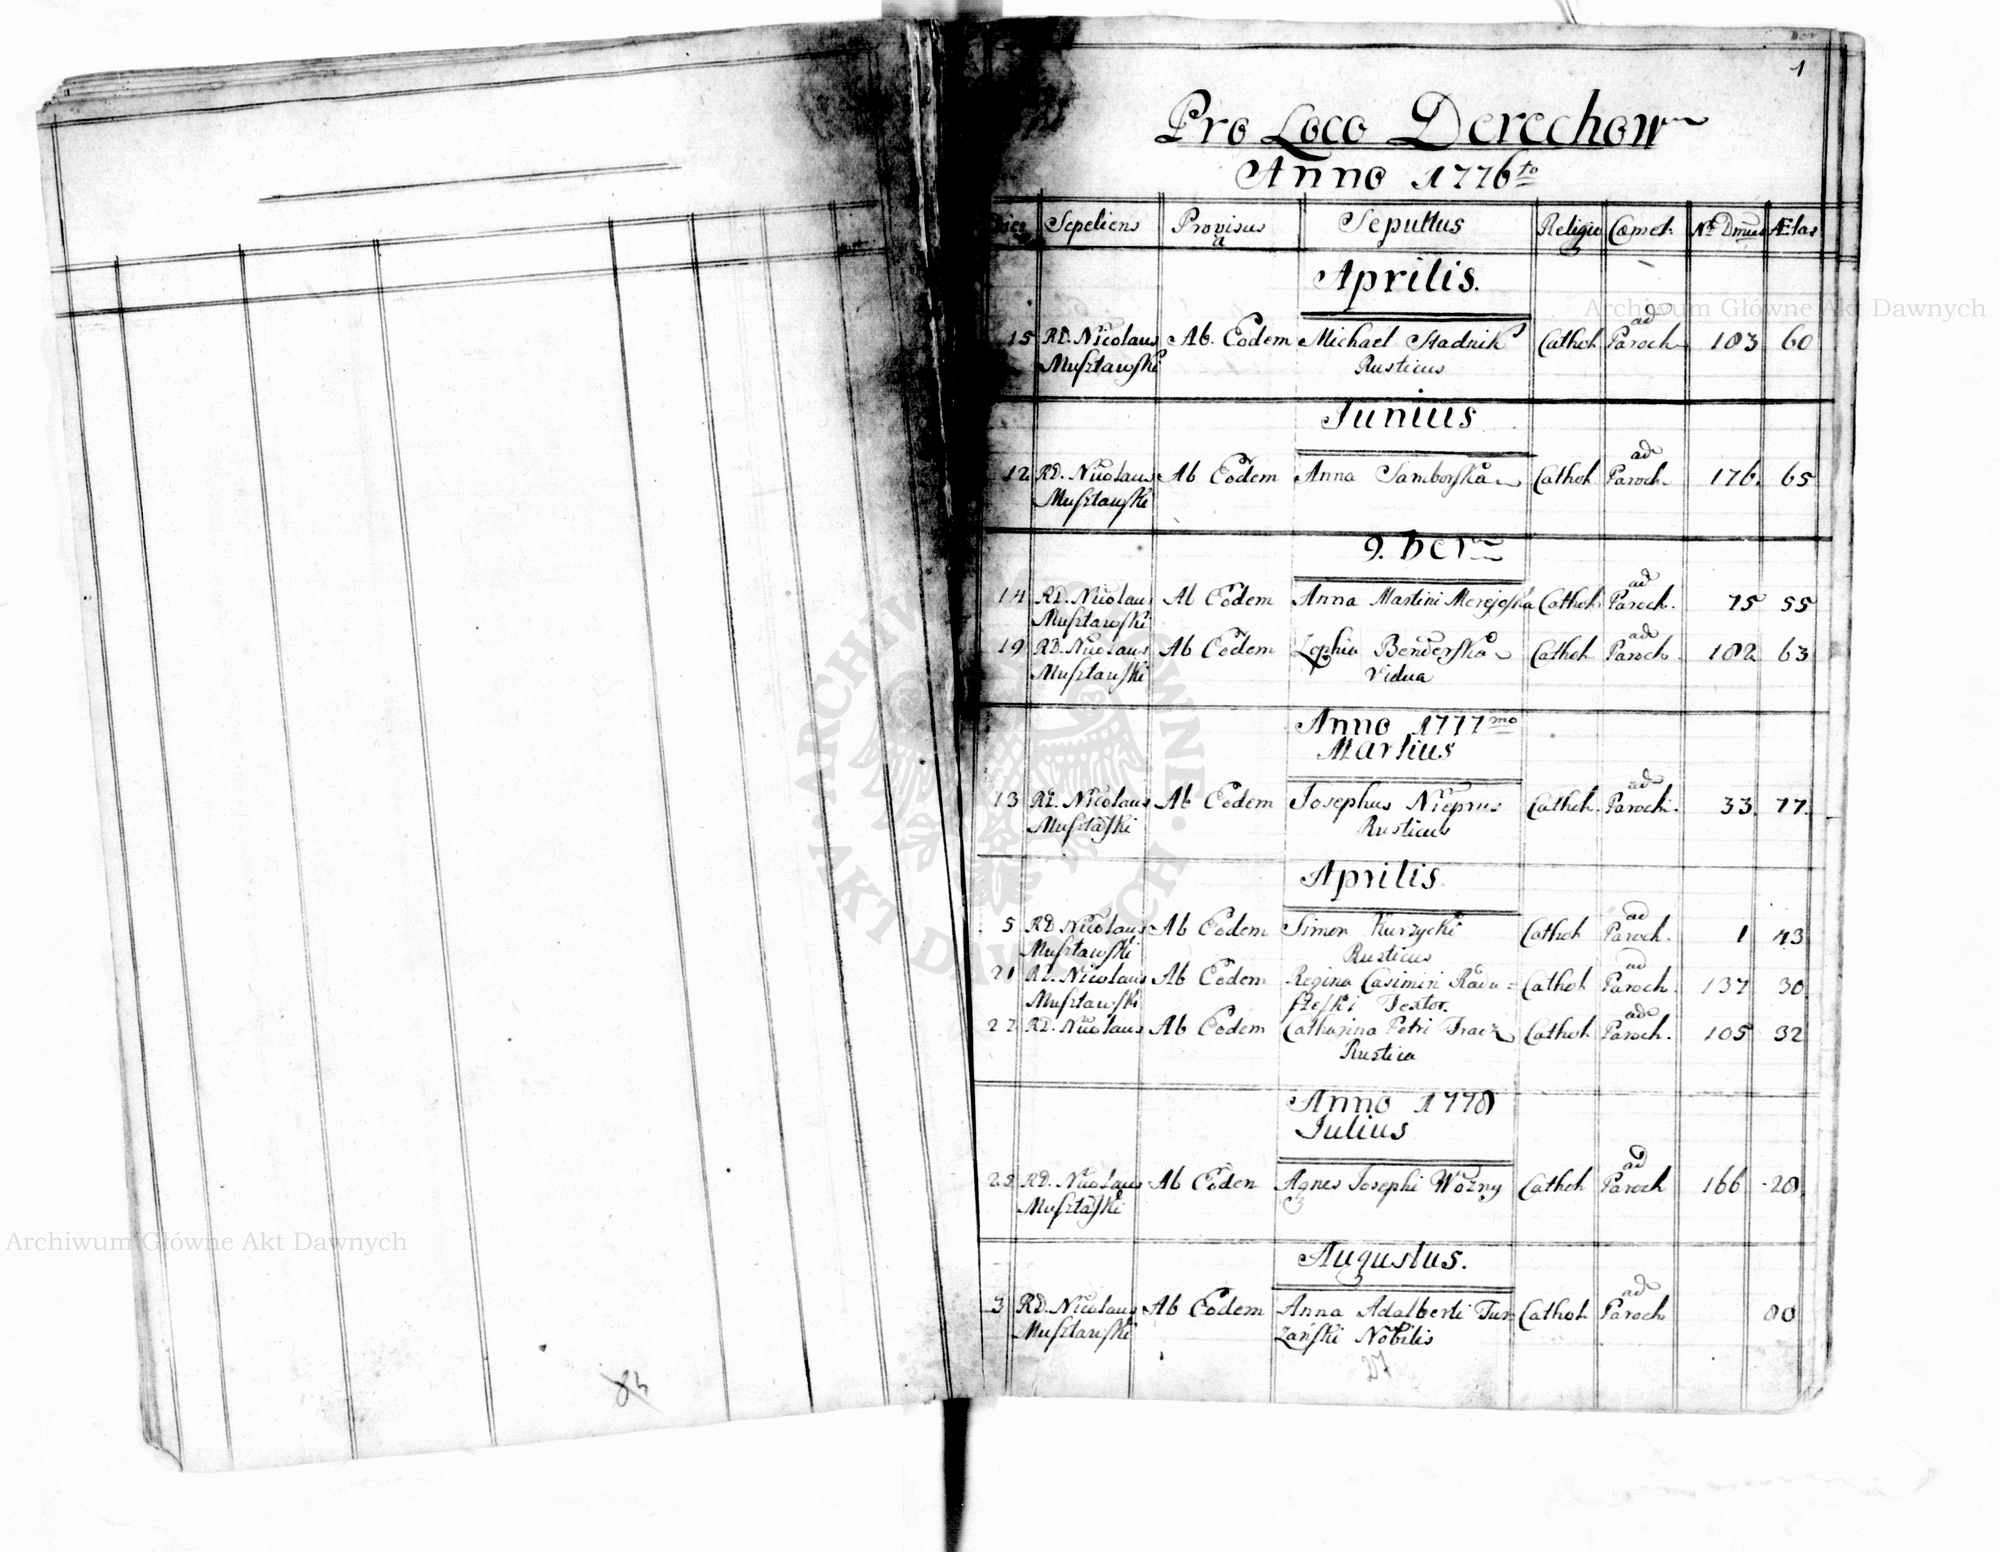 1
Pro Loco Derechow
Anno 1776to
Dies Sepeliens Provisus a Sepultus Religio Cæmet: Nr. Dmus Ætas
Aprilis.
15 RD. Nicolaus Ab. Eodem Michael Stadnik Cathol. ad Paroch. 183 60
Musztawski Rusticus
Junius
12 RD. Nicolaus Ab Eodem Anna Samborska Cathol ad Paroch. 176. 65
Musztawski
9.ber
14 RD. Nicolaus Ab Eodem Anna Martini Cathol ad Paroch. 75 55
Musztawski
19 RD. Nicolaus Ab Eodem Zophia Benderska Cathol ad Paroch. 182 63
Musztawski Vidua
Anno 1777mo
Martius
13 RD. Nicolaus Ab Eodem Josephus Nieprus Cathol. ad Paroch. 33. 77.
Musztaski Rusticus
Aprilis.
5 RD Nicolaus Ab Eodem Simon Kurzycki Cathol ad Paroch. 1 43
Musztawski Rusticus
21 RD. Nicolaus Ab Eodem Regina Casimiri Radu= Cathol ad Paroch. 137 30
Musztawski szeski Textor.
22 RD. Nicolaus Ab Eodem Catharina Petri Tracz Cathol ad Paroch. 105 32
Rustica
Anno 1778
Julius
25 RD. Nicolaus Ab Eodem Agnes Josephi Wozny Cathol ad Paroch 166 28
Musztaski
Augustus.
3 RD. Nicolaus Ab Eodem Anna Adalberti Tur Cathol ad Paroch 80
Musztawski zański Nobilis
27
Archiwum Główne Akt Dawnych
Archiwum Główne Akt Dawnych
ARCHIWUM GŁÓWNE · AKT DAWNYCH ·